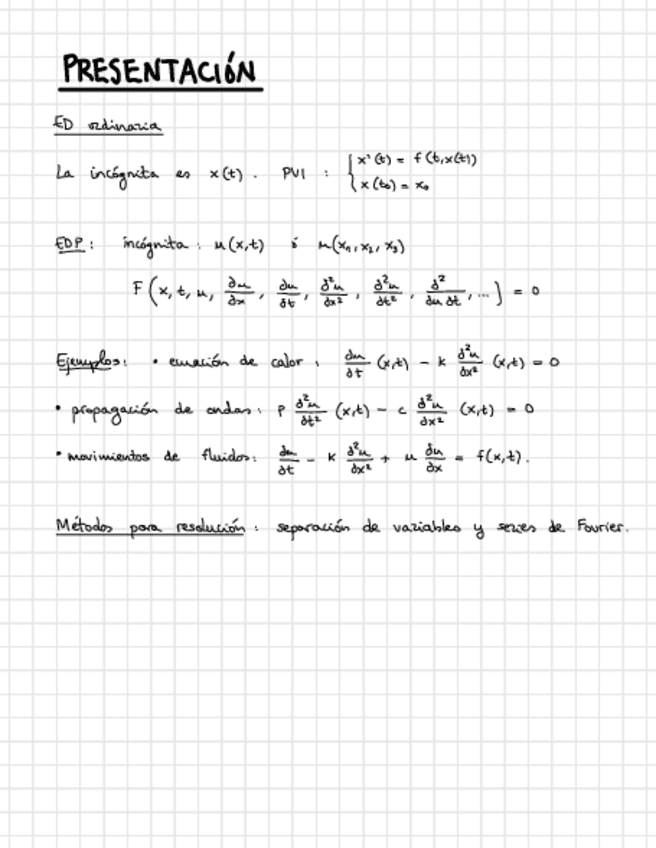 PRESENTACIÓN
ED ordinaria
La incógnita es x(t). PVI : { x'(t) = f(t,x(t))
x(t₀) = x₀
EDP: incógnita: u(x,t) ó u(x₁,x₂,x₃)
F(x, t, u, ∂u/∂x, ∂u/∂t, ∂²u/∂x², ∂²u/∂t², ∂²/∂u∂t, ...) = 0
Ejemplos: • ecuación de calor: ∂u/∂t (x,t) - K ∂²u/∂x² (x,t) = 0
• propagación de ondas: ρ ∂²u/∂t² (x,t) - c ∂²u/∂x² (x,t) = 0
• movimientos de fluidos: ∂u/∂t - K ∂²u/∂x² + u ∂u/∂x = f(x,t).
Métodos para resolución: separación de variables y series de Fourier.